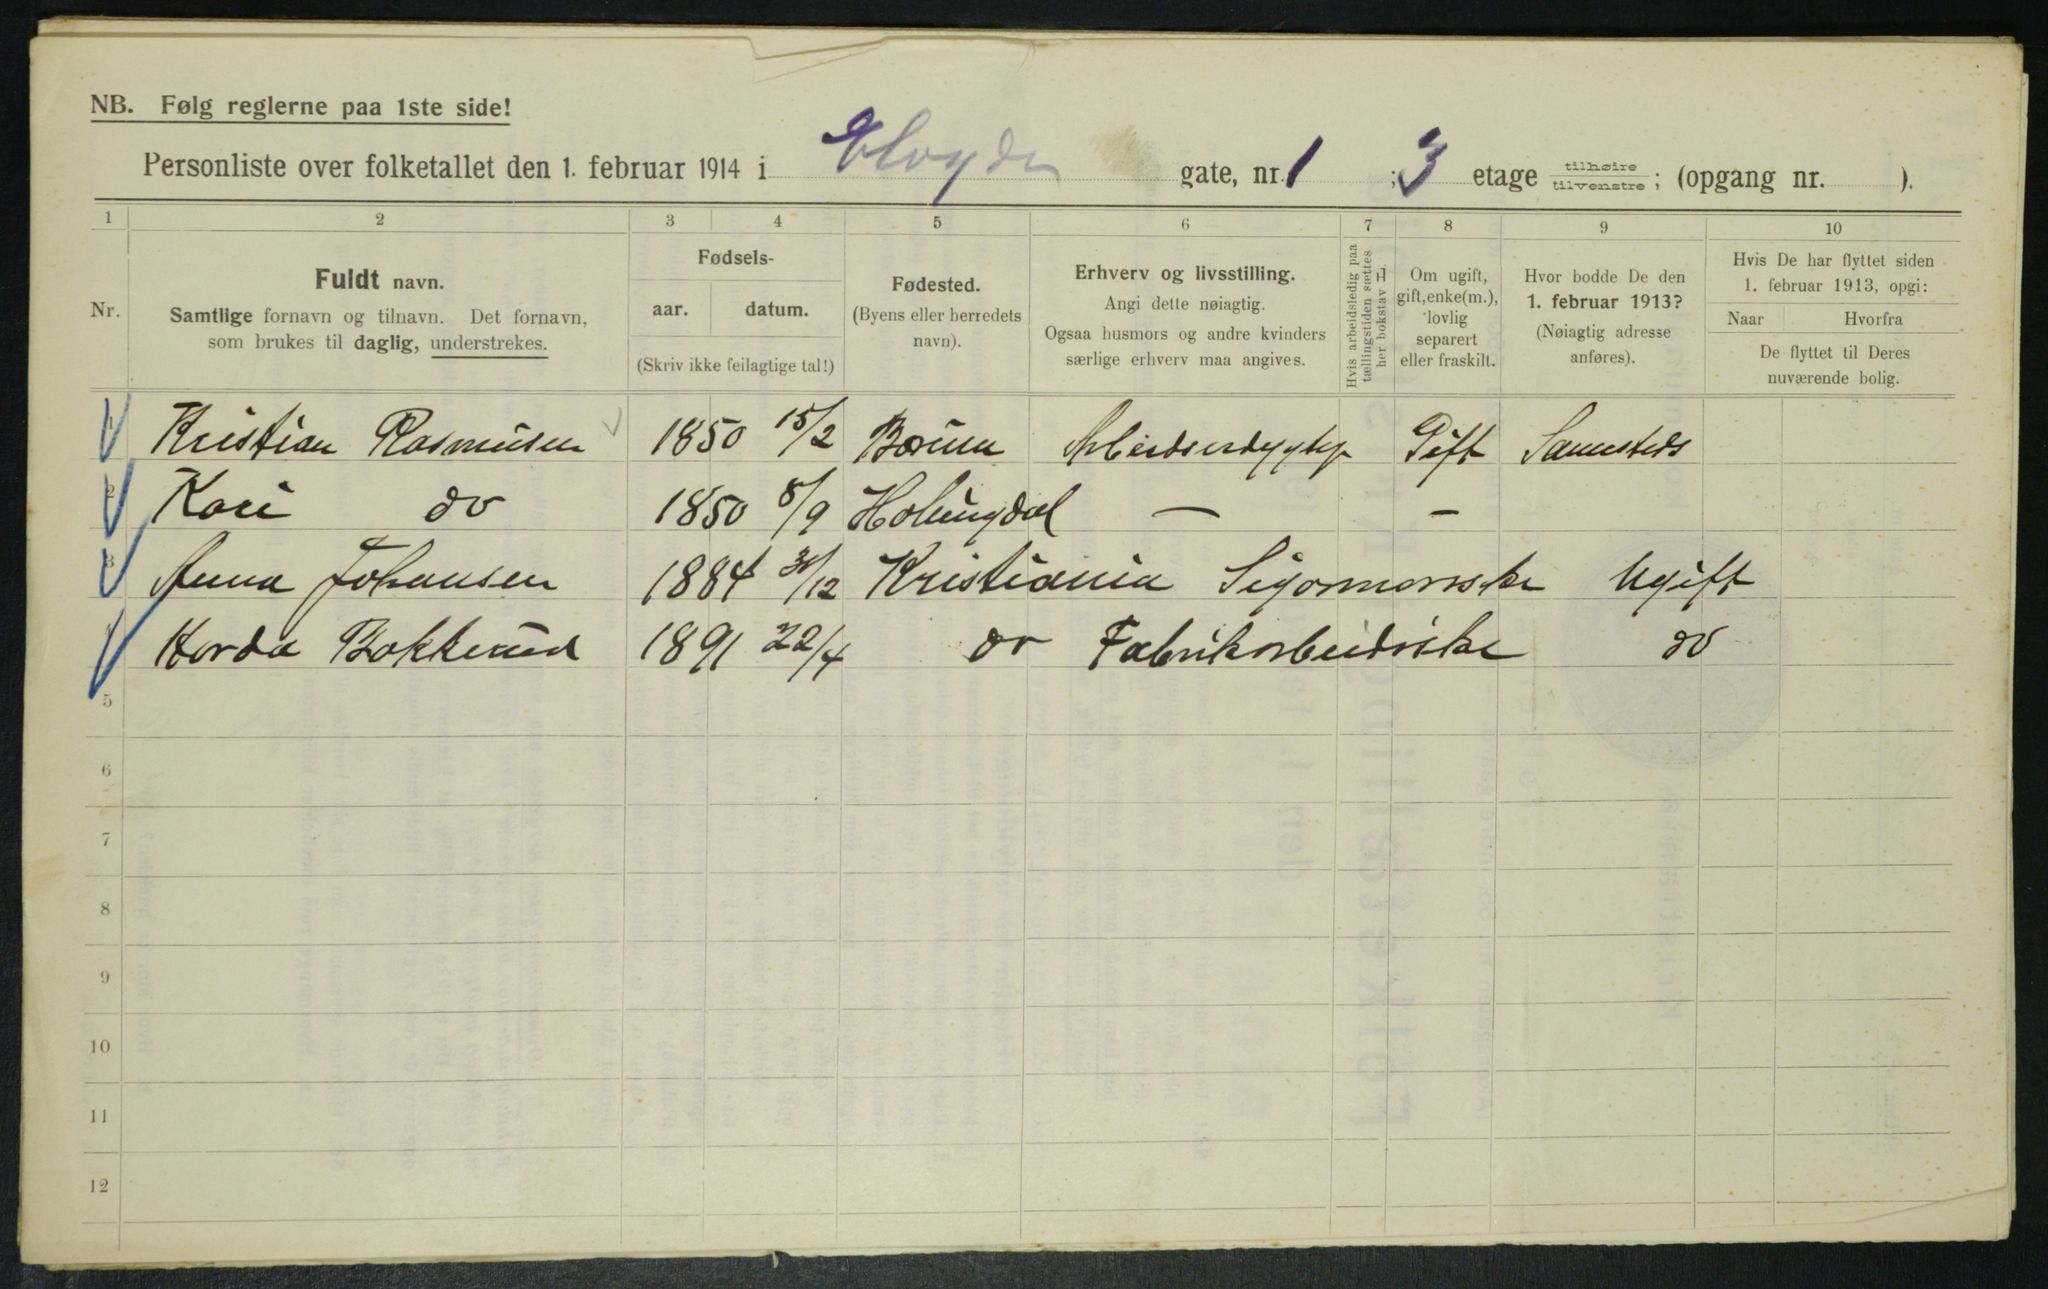 NB. Følg reglerne paa 1ste side!
Personliste over folketallet den 1. februar 1914 i gate, nr. 1 ; 3 etage tilhøire tilvenstre ; (opgang nr. ).
1 2 3 4 5 6 7 8 9 10
Nr.
Fuldt navn.
Samtlige fornavn og tilnavn. Det fornavn,
som brukes til daglig, understrekes.
Fødsels-
aar. datum.
(Skriv ikke feilagtige tal!)
Fødested.
(Byens eller herredets
navn).
Erhverv og livsstilling.
Angi dette nøiagtig.
Ogsaa husmors og andre kvinders
særlige erhverv maa angives.
Hvis arbeidsledig paa
tællingstiden sættes
her bokstav L.
Om ugift,
gift, enke(m.),
lovlig
separert
eller fraskilt.
Hvor bodde De den
1. februar 1913?
(Nøiagtig adresse
anføres).
Hvis De har flyttet siden
1. februar 1913, opgi:
Naar Hvorfra
De flyttet til Deres
nuværende bolig.
1 Kristian Rasmusen 1850 15/2 Bærum Gift Sammesteds
2 Kari do 1850 8/9 — —
3 Anna Johansen 1884 31/12 Kristiania Ugift
4 1891 22/4 do Fabrikarbeiderske do
5
6
7
8
9
10
11
12